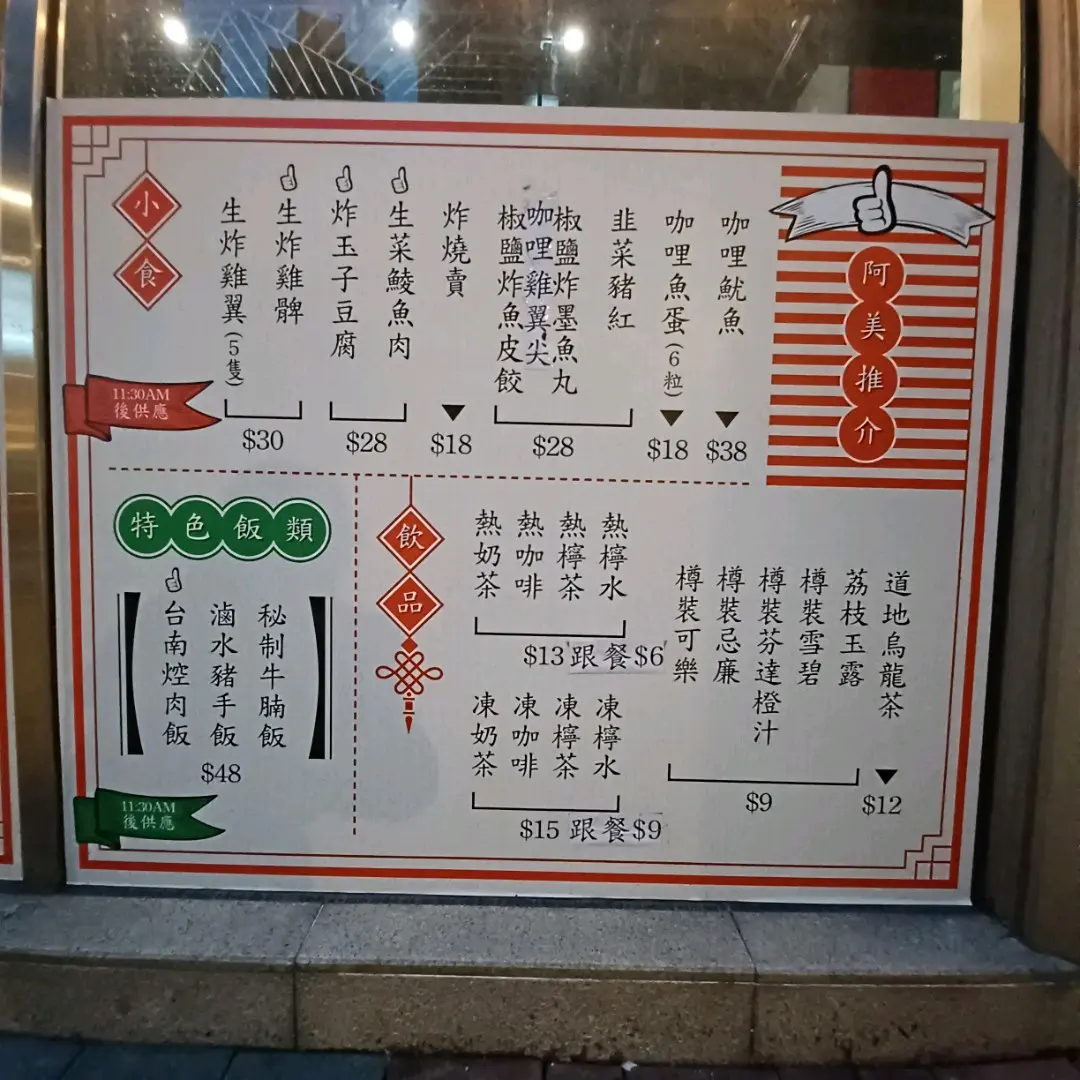 阿美推介
小食
咖哩魷魚
$38
咖哩魚蛋(6粒)
$18
韭菜豬紅
椒鹽炸墨魚丸
咖哩雞翼尖
椒鹽炸魚皮餃
$28
炸燒賣
$18
生菜鯪魚肉
炸玉子豆腐
$28
生炸雞髀
生炸雞翼(5隻)
$30
11:30AM
後供應
特色飯類
秘制牛腩飯
滷水豬手飯
台南焢肉飯
$48
11:30AM
後供應
飲品
熱檸水
熱檸茶
熱咖啡
熱奶茶
$13 跟餐$6
凍檸水
凍檸茶
凍咖啡
凍奶茶
$15 跟餐$9
道地烏龍茶
$12
荔枝玉露
樽裝雪碧
樽裝芬達橙汁
樽裝忌廉
樽裝可樂
$9